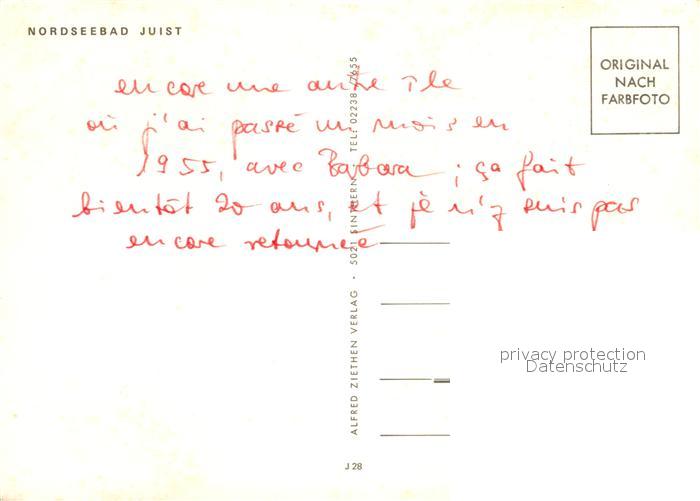 NORDSEEBAD JUIST
ORIGINAL
NACH
FARBFOTO
encore une autre île
où j'ai passé un mois en
1955, avec Barbara ; ça fait
bientôt 20 ans, et je n'y suis pas
encore retournée
ALFRED ZIETHEN VERLAG · 5021 SINTHERN TEL: 02238-7655
privacy protection
Datenschutz
J 28